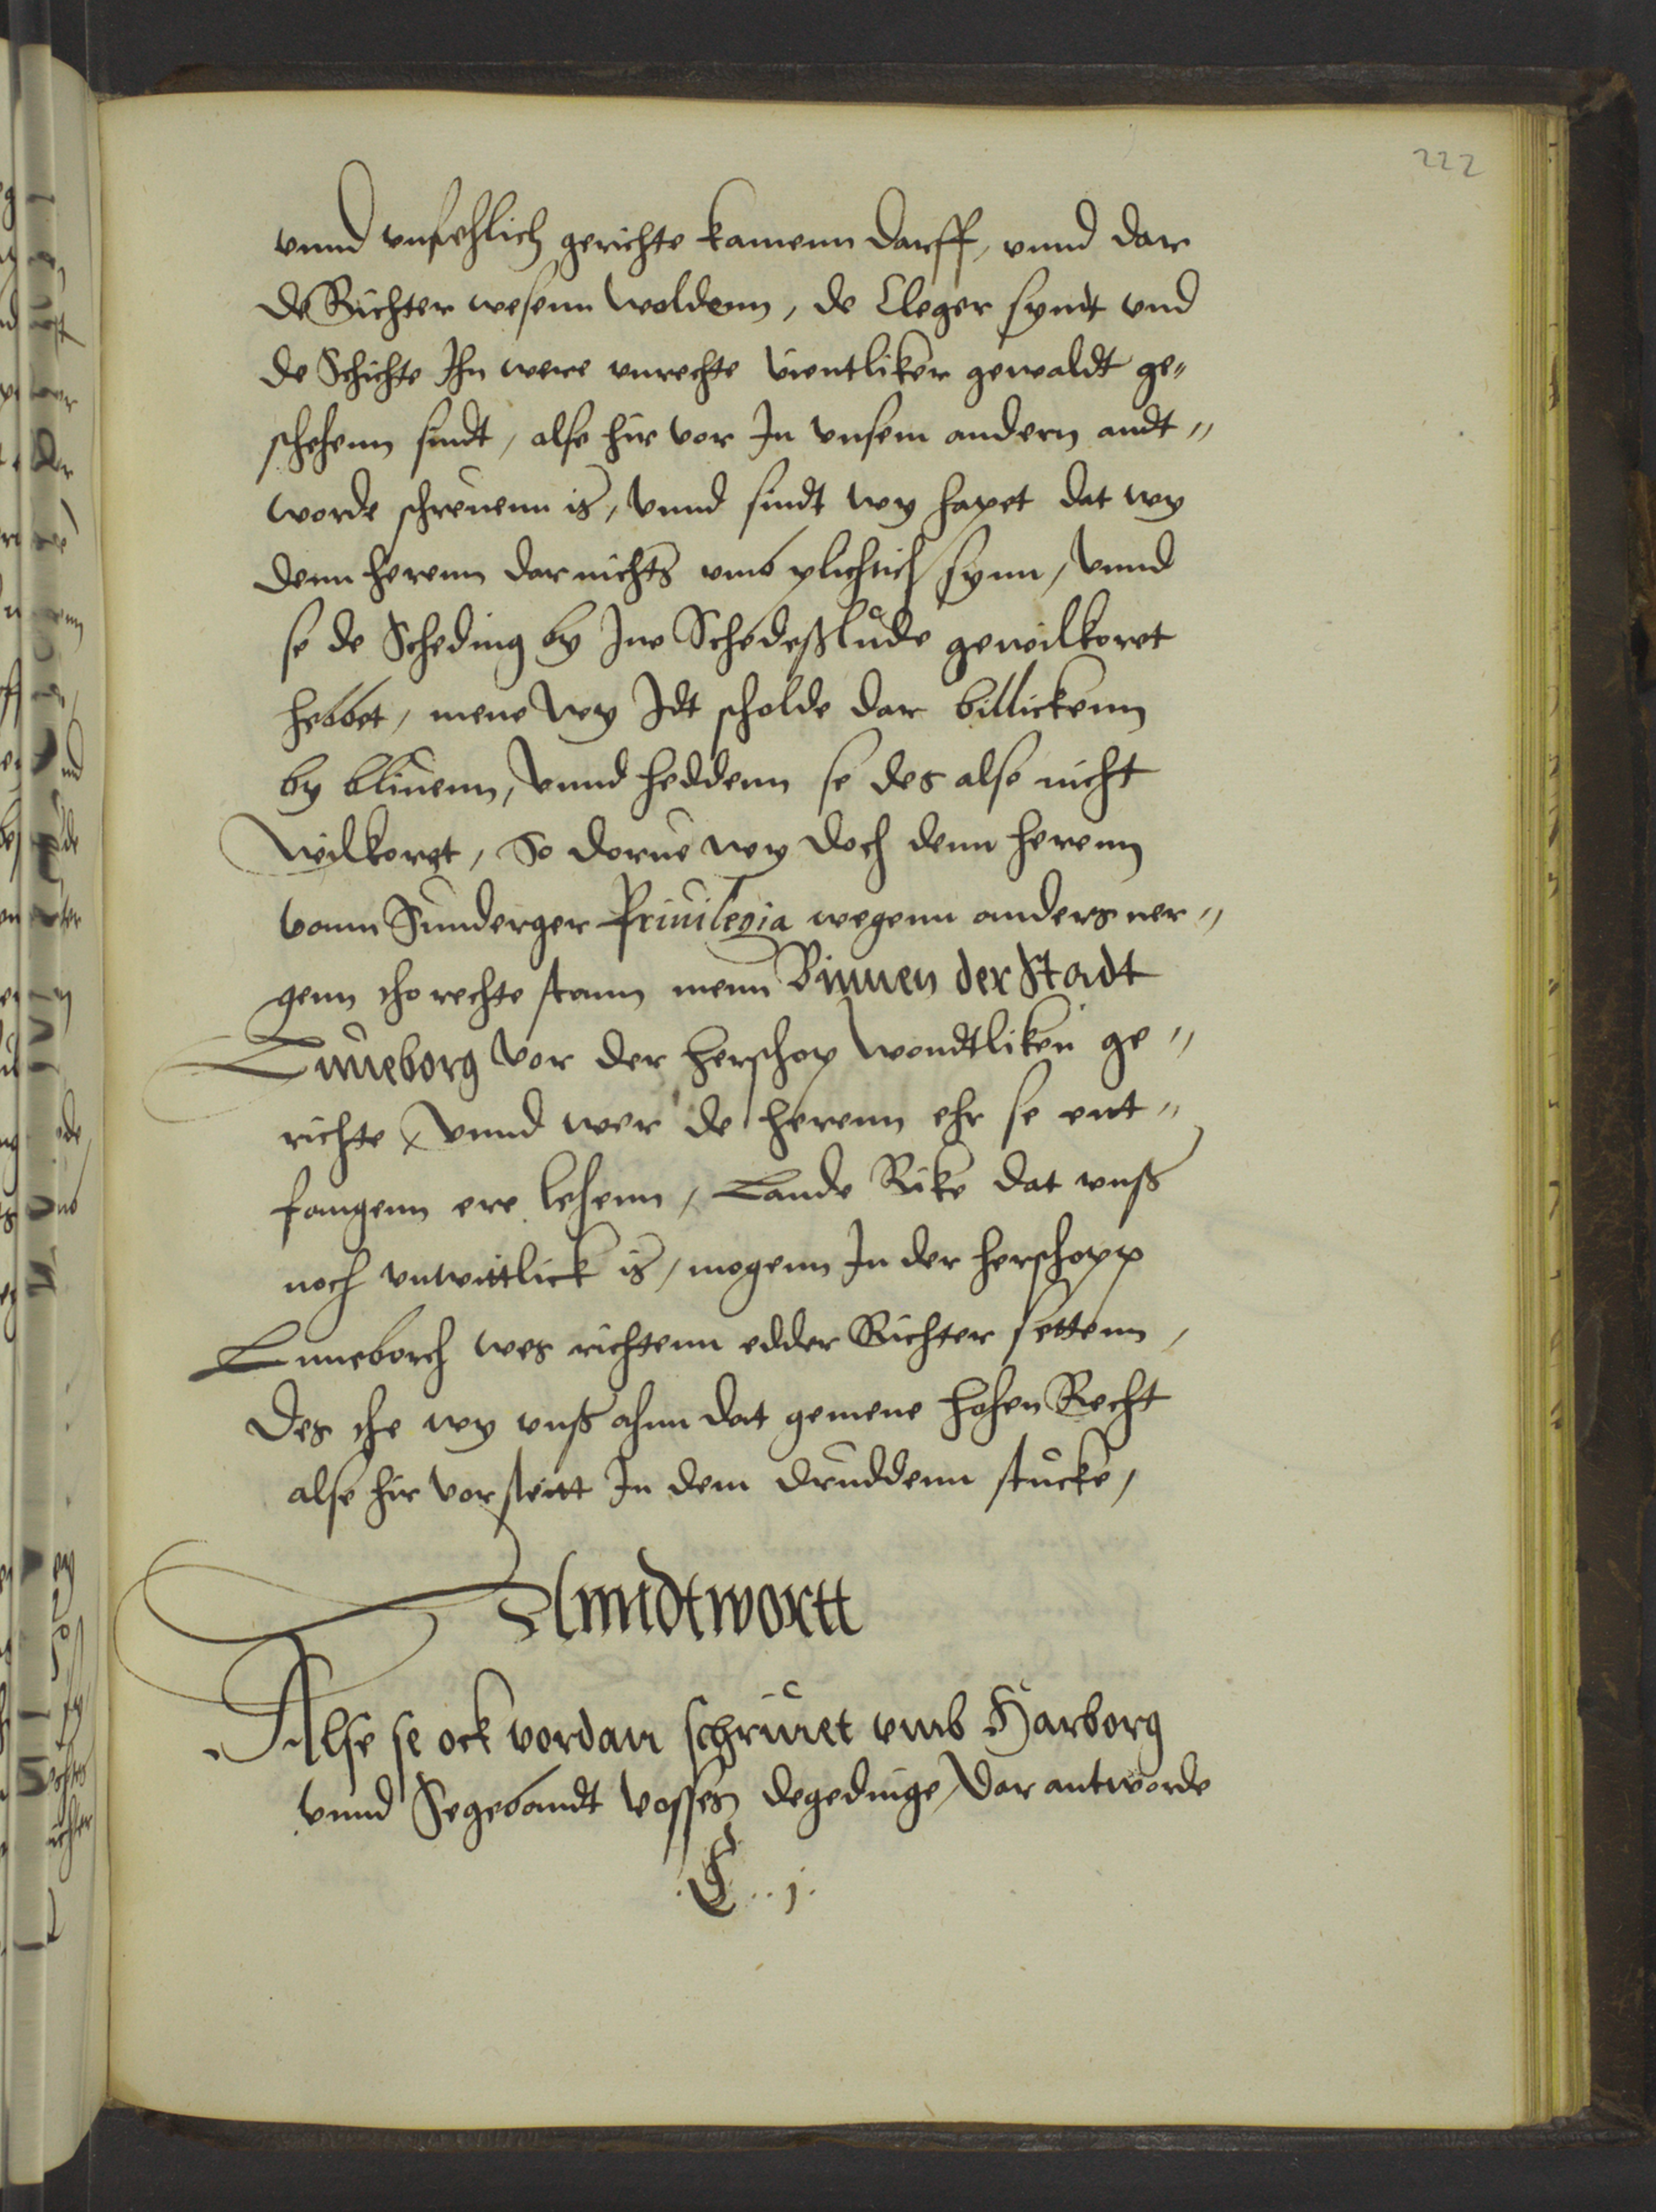 222
vnnd vnfehlich gerichte kamenn darff, vnnd dar
de Richter wesenn woldenn, de Cleger synt vnd
de Schichte Ihn were vnrechte vientliker gewaldt ge„
schehenn sindt, alse hir vor In vnsem andern andt„
worde schreuenn is, vnnd sindt wy hapet dat wy
denn herenn dar nichts vmb plichtich synn, vnnd
se de Scheding by Jwe Schedeßlude gewilkoret
hebbet, mene wy Idt scholde dar billickenn
by bliuenn, vnnd heddenn se des alse nicht
wilkoret, So dorue wy doch denn herenn
vann Sunderger Priuilegia wegenn anders ner„
genn tho rechte stann menn Binnen der Stadt
Luneborg vor der herschop wondtliken ge„
richte, vnnd wer de herenn ehr se ent„
fangenn ere lehenn, Lande Rike dat vnß
noch vnwittlick is, mogenn In der herschopp
Luneborch wes richtenn edder Richter settenn,
des the wy vnß ahnn dat gemene hohen Recht
alse hir vor steitt In dem druddenn stucke,
Anndtwortt
Alse se ock vordan schriuet vmb Harborg
vnnd Segebandt vossen degedinge, dar antworde
E. j.